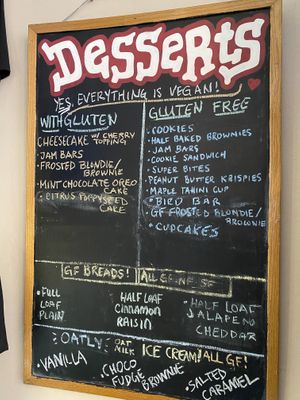 Desserts
YES, EVERYTHING IS VEGAN!
WITH GLUTEN
CHEESECAKE w/ CHERRY
TOPPING
• JAM BARS
• FROSTED BLONDIE/
BROWNIE
• MINT CHOCOLATE OREO
CAKE
• CITRUS POPPYSEED
CAKE
GLUTEN FREE
• COOKIES
• HALF BAKED BROWNIES
• JAM BARS
• COOKIE SANDWICH
• SUPER BITES
• PEANUT BUTTER KRISPIES
• MAPLE TAHINI CUP
• BIRD BAR
• GF FROSTED BLONDIE/
BROWNIE
• CUPCAKES
GF BREADS! ALL GF
• FULL
LOAF
PLAIN
HALF LOAF
CINNAMON
RAISIN
• HALF LOAF
JALAPENO
CHEDDAR
OATLY OAT MILK ICE CREAM! ALL GF!
• VANILLA
• CHOCO
FUDGE
BROWNIE
• SALTED
CARAMEL